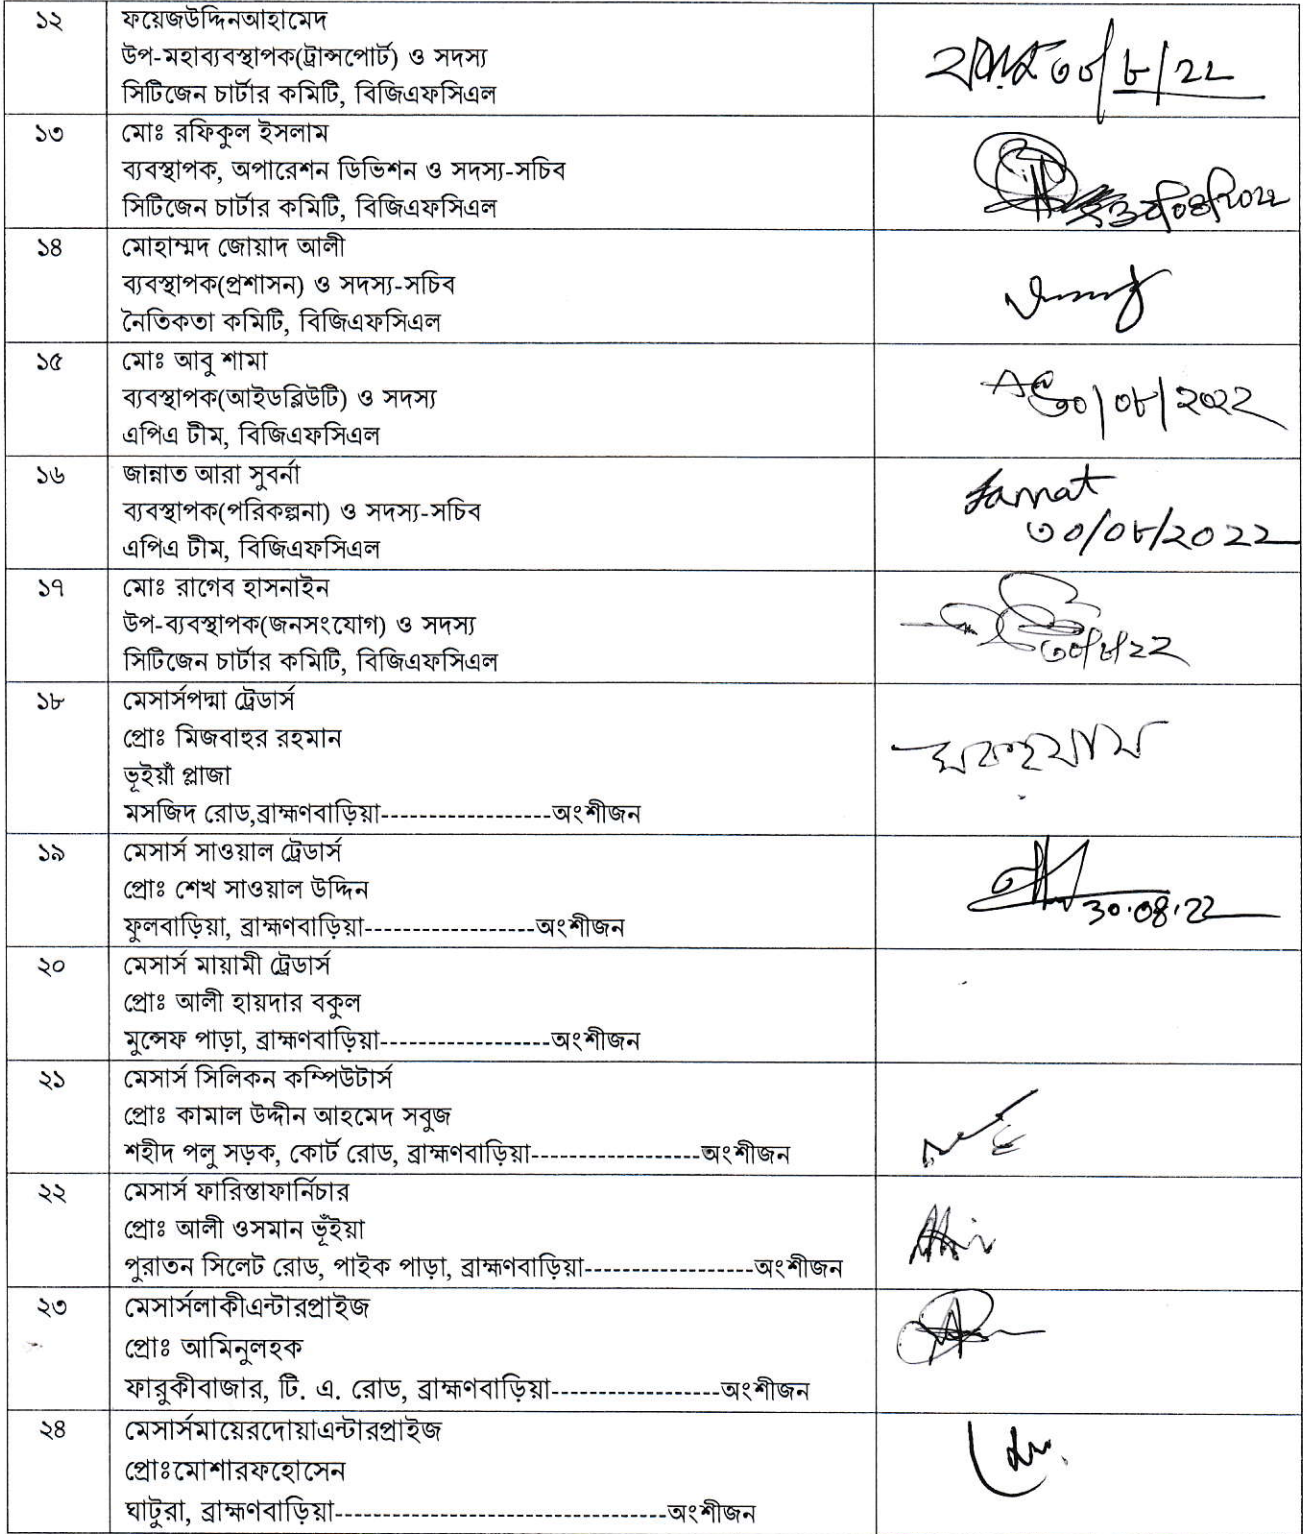 ১২
ফয়েজউদ্দিনআহামেদ
উপ-মহাব্যবস্থাপক(ট্রান্সপোর্ট) ও সদস্য
সিটিজেন চার্টার কমিটি, বিজিএফসিএল
৩০/৮/২২
১৩
মোঃ রফিকুল ইসলাম
ব্যবস্থাপক, অপারেশন ডিভিশন ও সদস্য-সচিব
সিটিজেন চার্টার কমিটি, বিজিএফসিএল
৩০/০৪/২০২২
১৪
মোহাম্মদ জোয়াদ আলী
ব্যবস্থাপক(প্রশাসন) ও সদস্য-সচিব
নৈতিকতা কমিটি, বিজিএফসিএল
১৫
মোঃ আবু শামা
ব্যবস্থাপক(আইডব্লিউটি) ও সদস্য
এপিএ টীম, বিজিএফসিএল
৩০/০৮/২০২২
১৬
জান্নাত আরা সুবর্না
ব্যবস্থাপক(পরিকল্পনা) ও সদস্য-সচিব
এপিএ টীম, বিজিএফসিএল
Jannat
৩০/০৮/২০২২
১৭
মোঃ রাগেব হাসনাইন
উপ-ব্যবস্থাপক(জনসংযোগ) ও সদস্য
সিটিজেন চার্টার কমিটি, বিজিএফসিএল
৩০/৮/২২
১৮
মেসার্সপদ্মা ট্রেডার্স
প্রোঃ মিজবাহুর রহমান
ভূইয়াঁ প্লাজা
মসজিদ রোড,ব্রাহ্মণবাড়িয়া------------------অংশীজন
১৯
মেসার্স সাওয়াল ট্রেডার্স
প্রোঃ শেখ সাওয়াল উদ্দিন
ফুলবাড়িয়া, ব্রাহ্মণবাড়িয়া------------------অংশীজন
30.08.22
২০
মেসার্স মায়ামী ট্রেডার্স
প্রোঃ আলী হায়দার বকুল
মুন্সেফ পাড়া, ব্রাহ্মণবাড়িয়া------------------অংশীজন
২১
মেসার্স সিলিকন কম্পিউটার্স
প্রোঃ কামাল উদ্দীন আহমেদ সবুজ
শহীদ পলু সড়ক, কোর্ট রোড, ব্রাহ্মণবাড়িয়া------------------অংশীজন
২২
মেসার্স ফারিস্তাফার্নিচার
প্রোঃ আলী ওসমান ভূঁইয়া
পুরাতন সিলেট রোড, পাইক পাড়া, ব্রাহ্মণবাড়িয়া------------------অংশীজন
২৩
মেসার্সলাকীএন্টারপ্রাইজ
প্রোঃ আমিনুলহক
ফারুকীবাজার, টি. এ. রোড, ব্রাহ্মণবাড়িয়া------------------অংশীজন
২৪
মেসার্সমায়েরদোয়াএন্টারপ্রাইজ
প্রোঃমোশারফহোসেন
ঘাটুরা, ব্রাহ্মণবাড়িয়া-----------------------------------অংশীজন